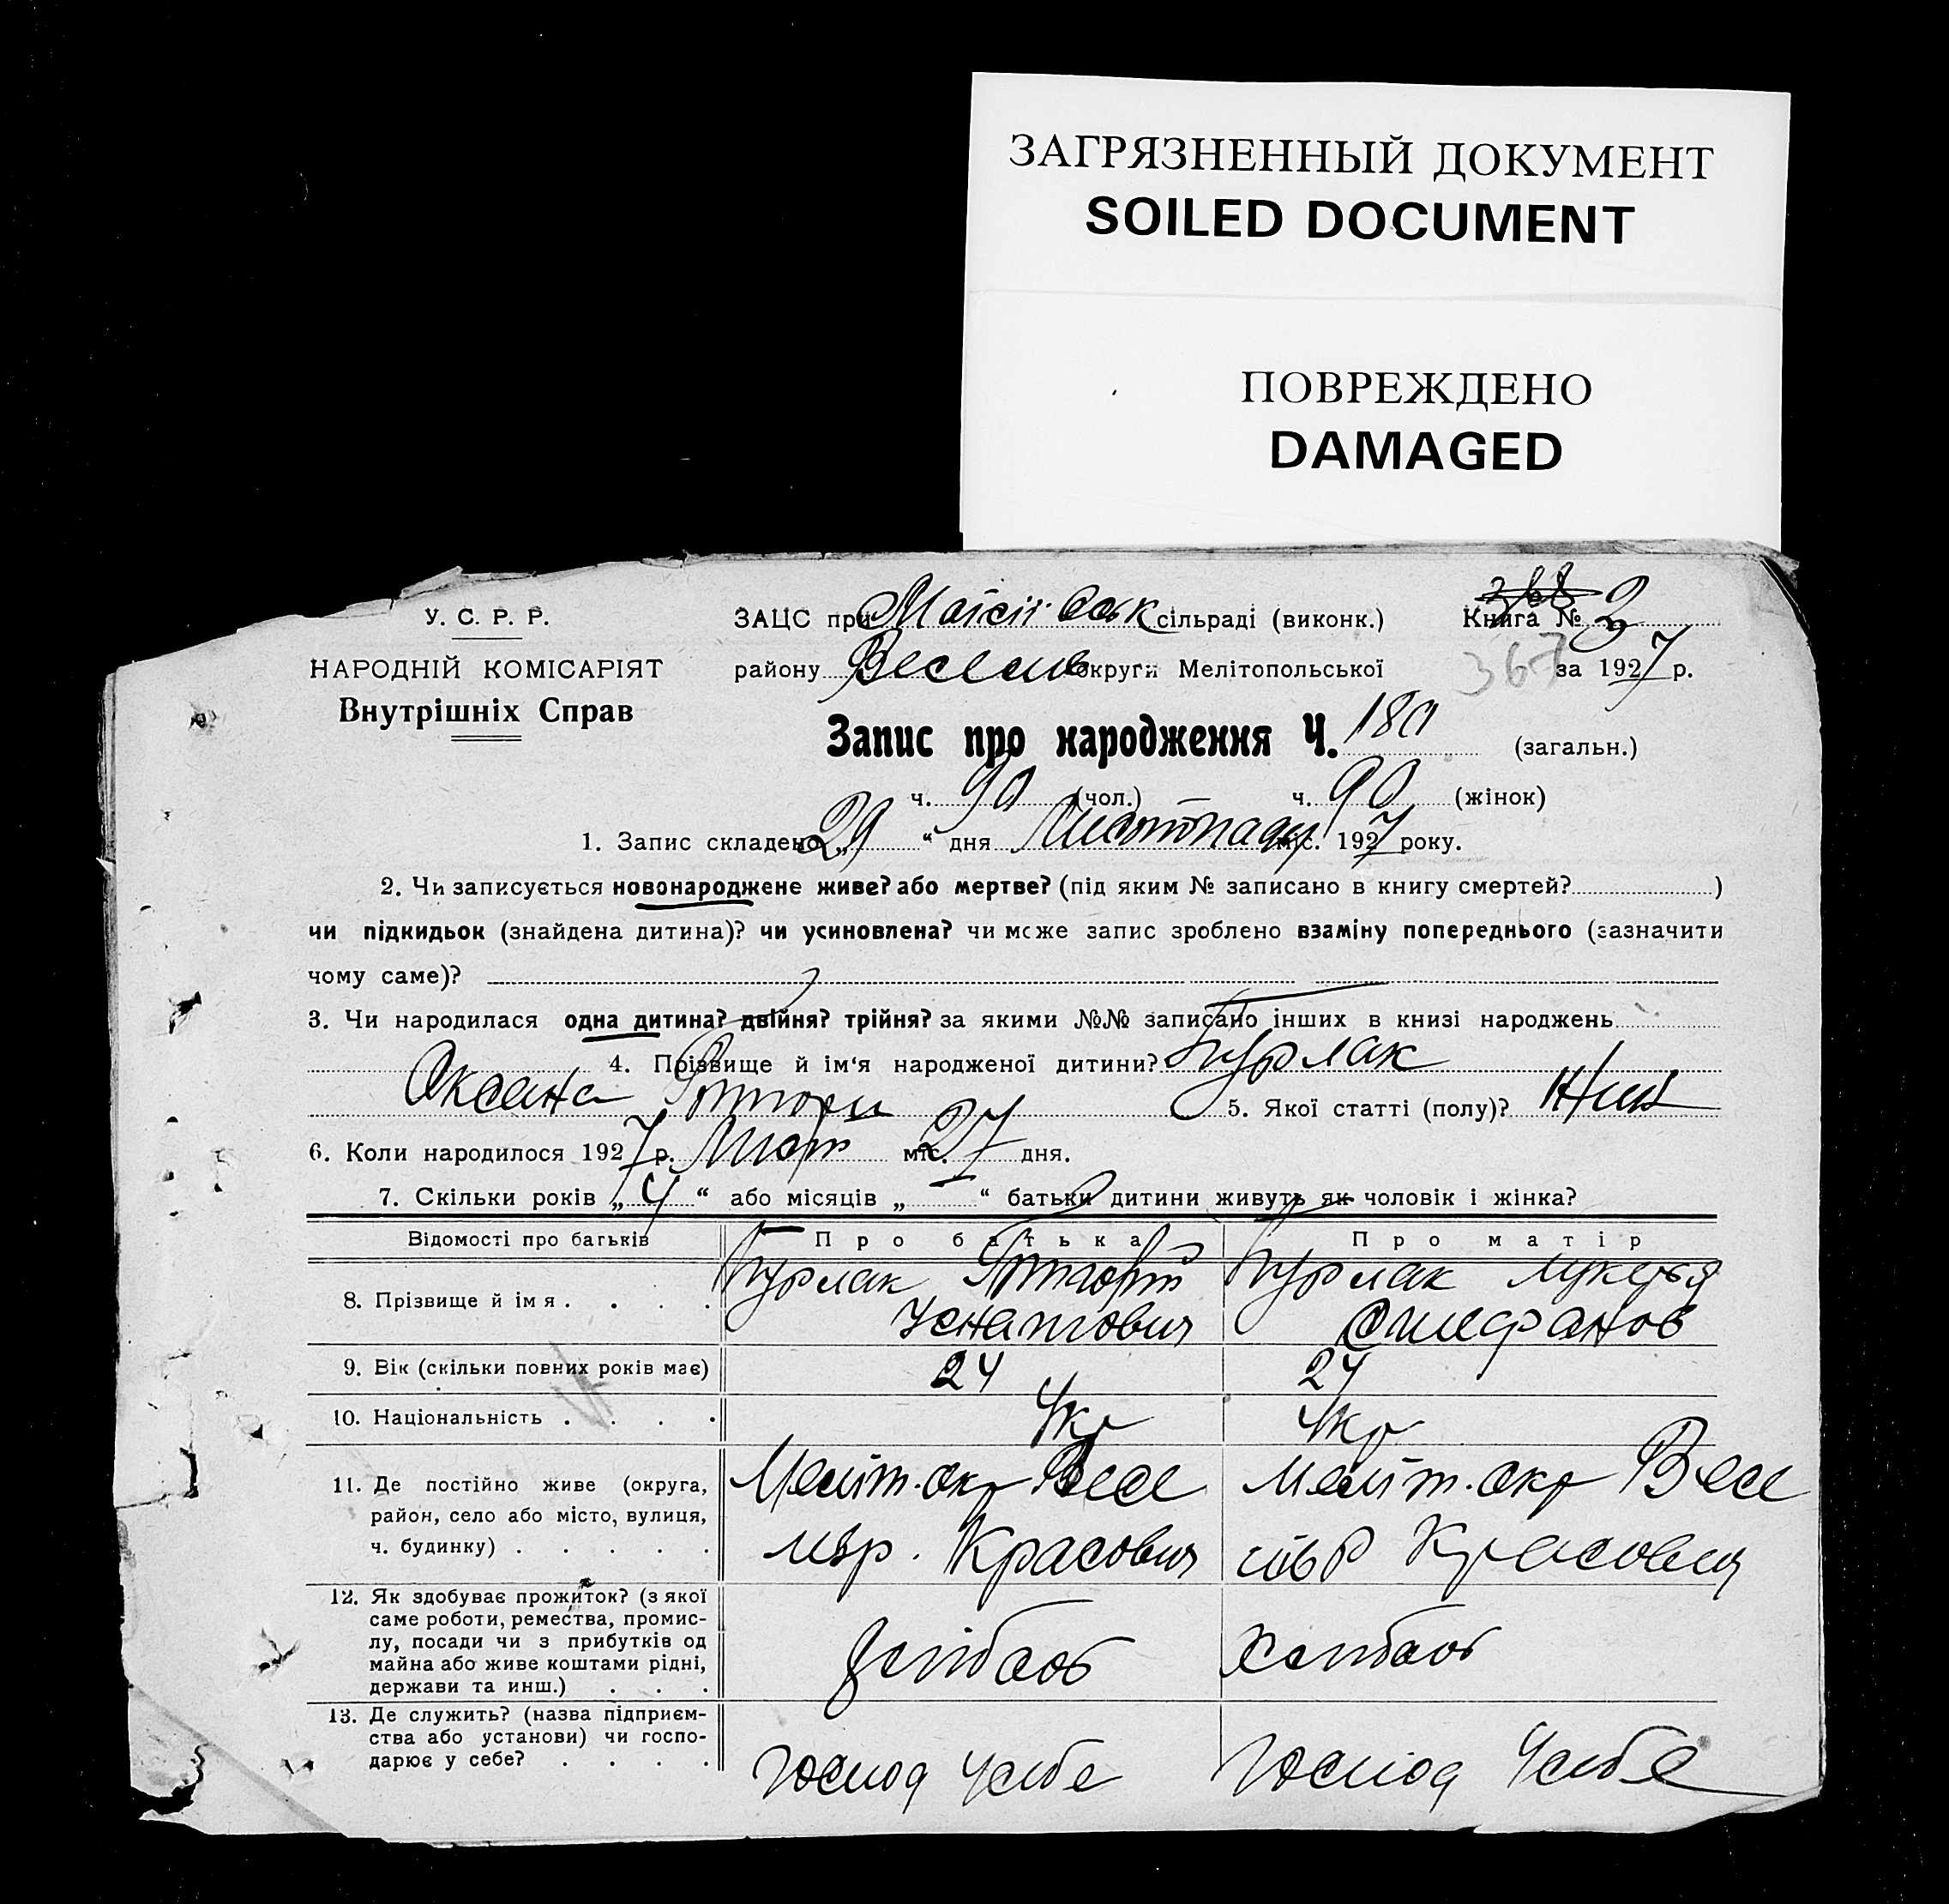 ЗАГРЯЗНЕННЫЙ ДОКУМЕНТ
SOILED DOCUMENT
ПОВРЕЖДЕНО
DAMAGED
У. С. Р. Р.
НАРОДНІЙ КОМІСАРІЯТ
Внутрішніх Справ
ЗАЦС при сільраді (виконк.)
району Весел округи Мелітопольської
Книга № 2
367 за 1927 р.
Запис про народження Ч. 180 (загальн.)
ч. 90 (чол.) ч. 90 (жінок)
1. Запис складено „29“ дня Листопаду міс. 1927 року.
2. Чи записується новонароджене живе? або мертве? (під яким № записано в книгу смертей? )
чи підкидьок (знайдена дитина)? чи усиновлена? чи може запис зроблено взаміну попереднього (зазначити
чому саме)?
3. Чи народилася одна дитина? двійня? трійня? за якими №№ записано інших в книзі народжень
4. Прізвище й ім‘я народженої дитини? Бурлак
Оксана 5. Якої статті (полу)? Жін
6. Коли народилося 1927 р. Лист міс. 27 дня.
7. Скільки років „4“ або місяців „ “ батьки дитини живуть як чоловік і жінка?
Відомості про батьків Про батька Про матір
8. Прізвище й імя . . . . Бурлак Бурлак Лукерья
9. Вік (скільки повних років має) 24 24
10. Національність . . . . Укр Укр
11. Де постійно живе (округа, Меліт. окр Весе Меліт. окр Весе
район, село або місто, вулиця,
ч. будинку) . . . . .
12. Як здобуває прожиток? (з якої
саме роботи, ремества, промис-
лу, посади чи з прибутків од
майна або живе коштами рідні, хлібороб хлібороб
держави та инш.) . . .
13. Де служить? (назва підприєм-
ства або установи) чи госпо-
дарює у себе? . . . . Господ у себе Господ у себе